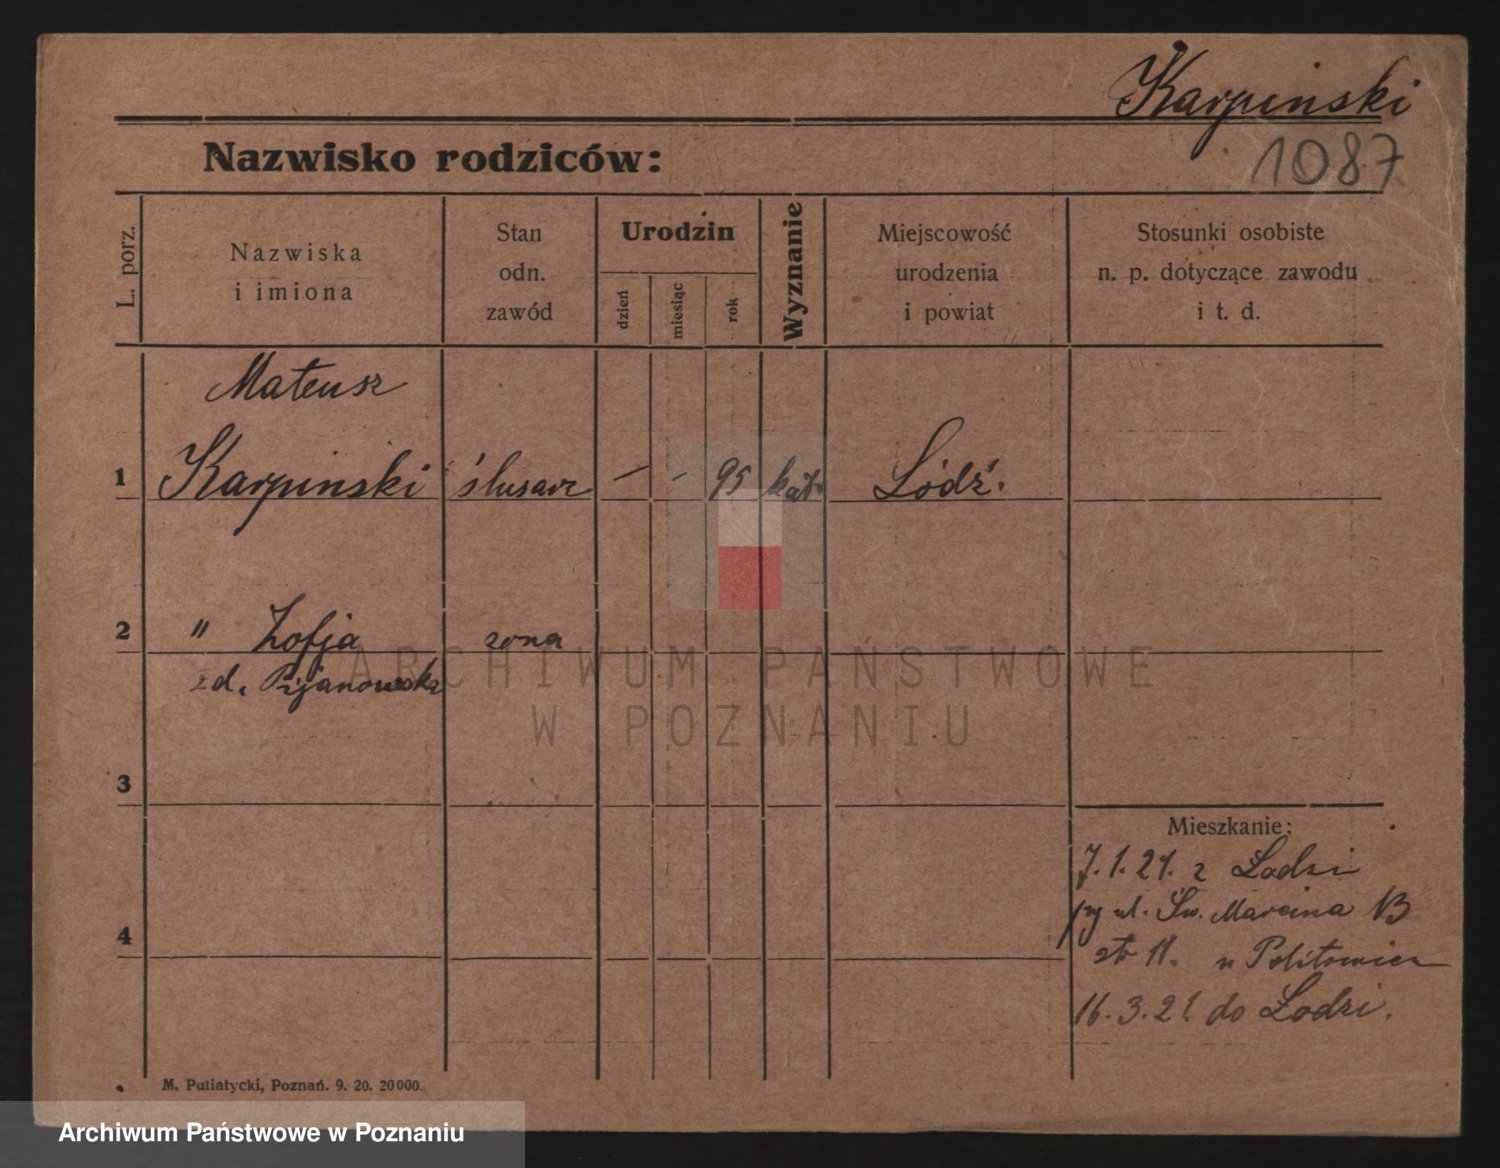 Karpinski
Nazwisko rodziców:
1087
L. porz.
Nazwiska
i imiona
Stan
odn.
zawód
Urodzin
dzień
miesiąc
rok
Wyznanie
Miejscowość
urodzenia
i powiat
Stosunki osobiste
n. p. dotyczące zawodu
i t. d.
Mateusz
1 Karpinski ślusarz — - 95 kat. Łódź.
2 " Zofja zona
zd. Pijanowska
ARCHIWUM PAŃSTWOWE
W POZNANIU
3
Mieszkanie:
7.1.21. z Łodzi
ul. Św. Marcina 13
4
str 11. u Politowicz
16.3.21. do Łodzi.
M. Putiatycki, Poznań. 9. 20. 20000.
Archiwum Państwowe w Poznaniu